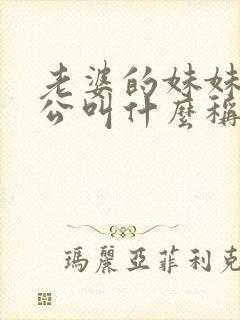 老婆的妹妹
公叫什麼稱
瑪麗亞菲利克